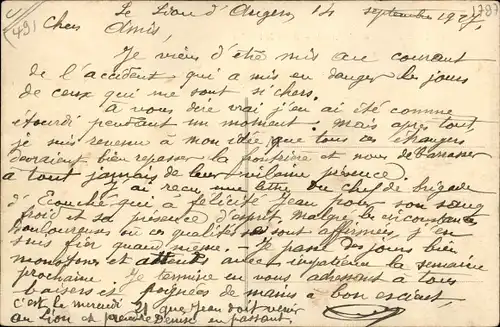 (49)
1787
Le Lion d'Angers 14 septembre 1927
Chers Amis,
Je viens d'être mis au courant
de l'accident qui a mis en danger les jours
de ceux qui me sont si chers.
A vous dire vrai j'en ai été comme
étourdi pendant un moment. Mais après tout,
je suis revenu à mon idée que tous ces étrangers
devraient bien repasser la frontière et nous débarrasser
à tout jamais de leur vilaine présence.
J'ai reçu une lettre du chef de brigade
d'Ecouché qui a félicité Jean pour son sang
froid et sa présence d'esprit malgré les circonstances
douloureuses où ces qualités se sont affirmées, j'en
suis fier quand même. - Je passe des jours bien
monotones et attends avec impatience la semaine
prochaine. Je termine en vous adressant à tous
baisers et poignées de mains à bon escient.
c'est le mercredi 21 que Jean doit venir
au Lion et prendre Denise en passant.